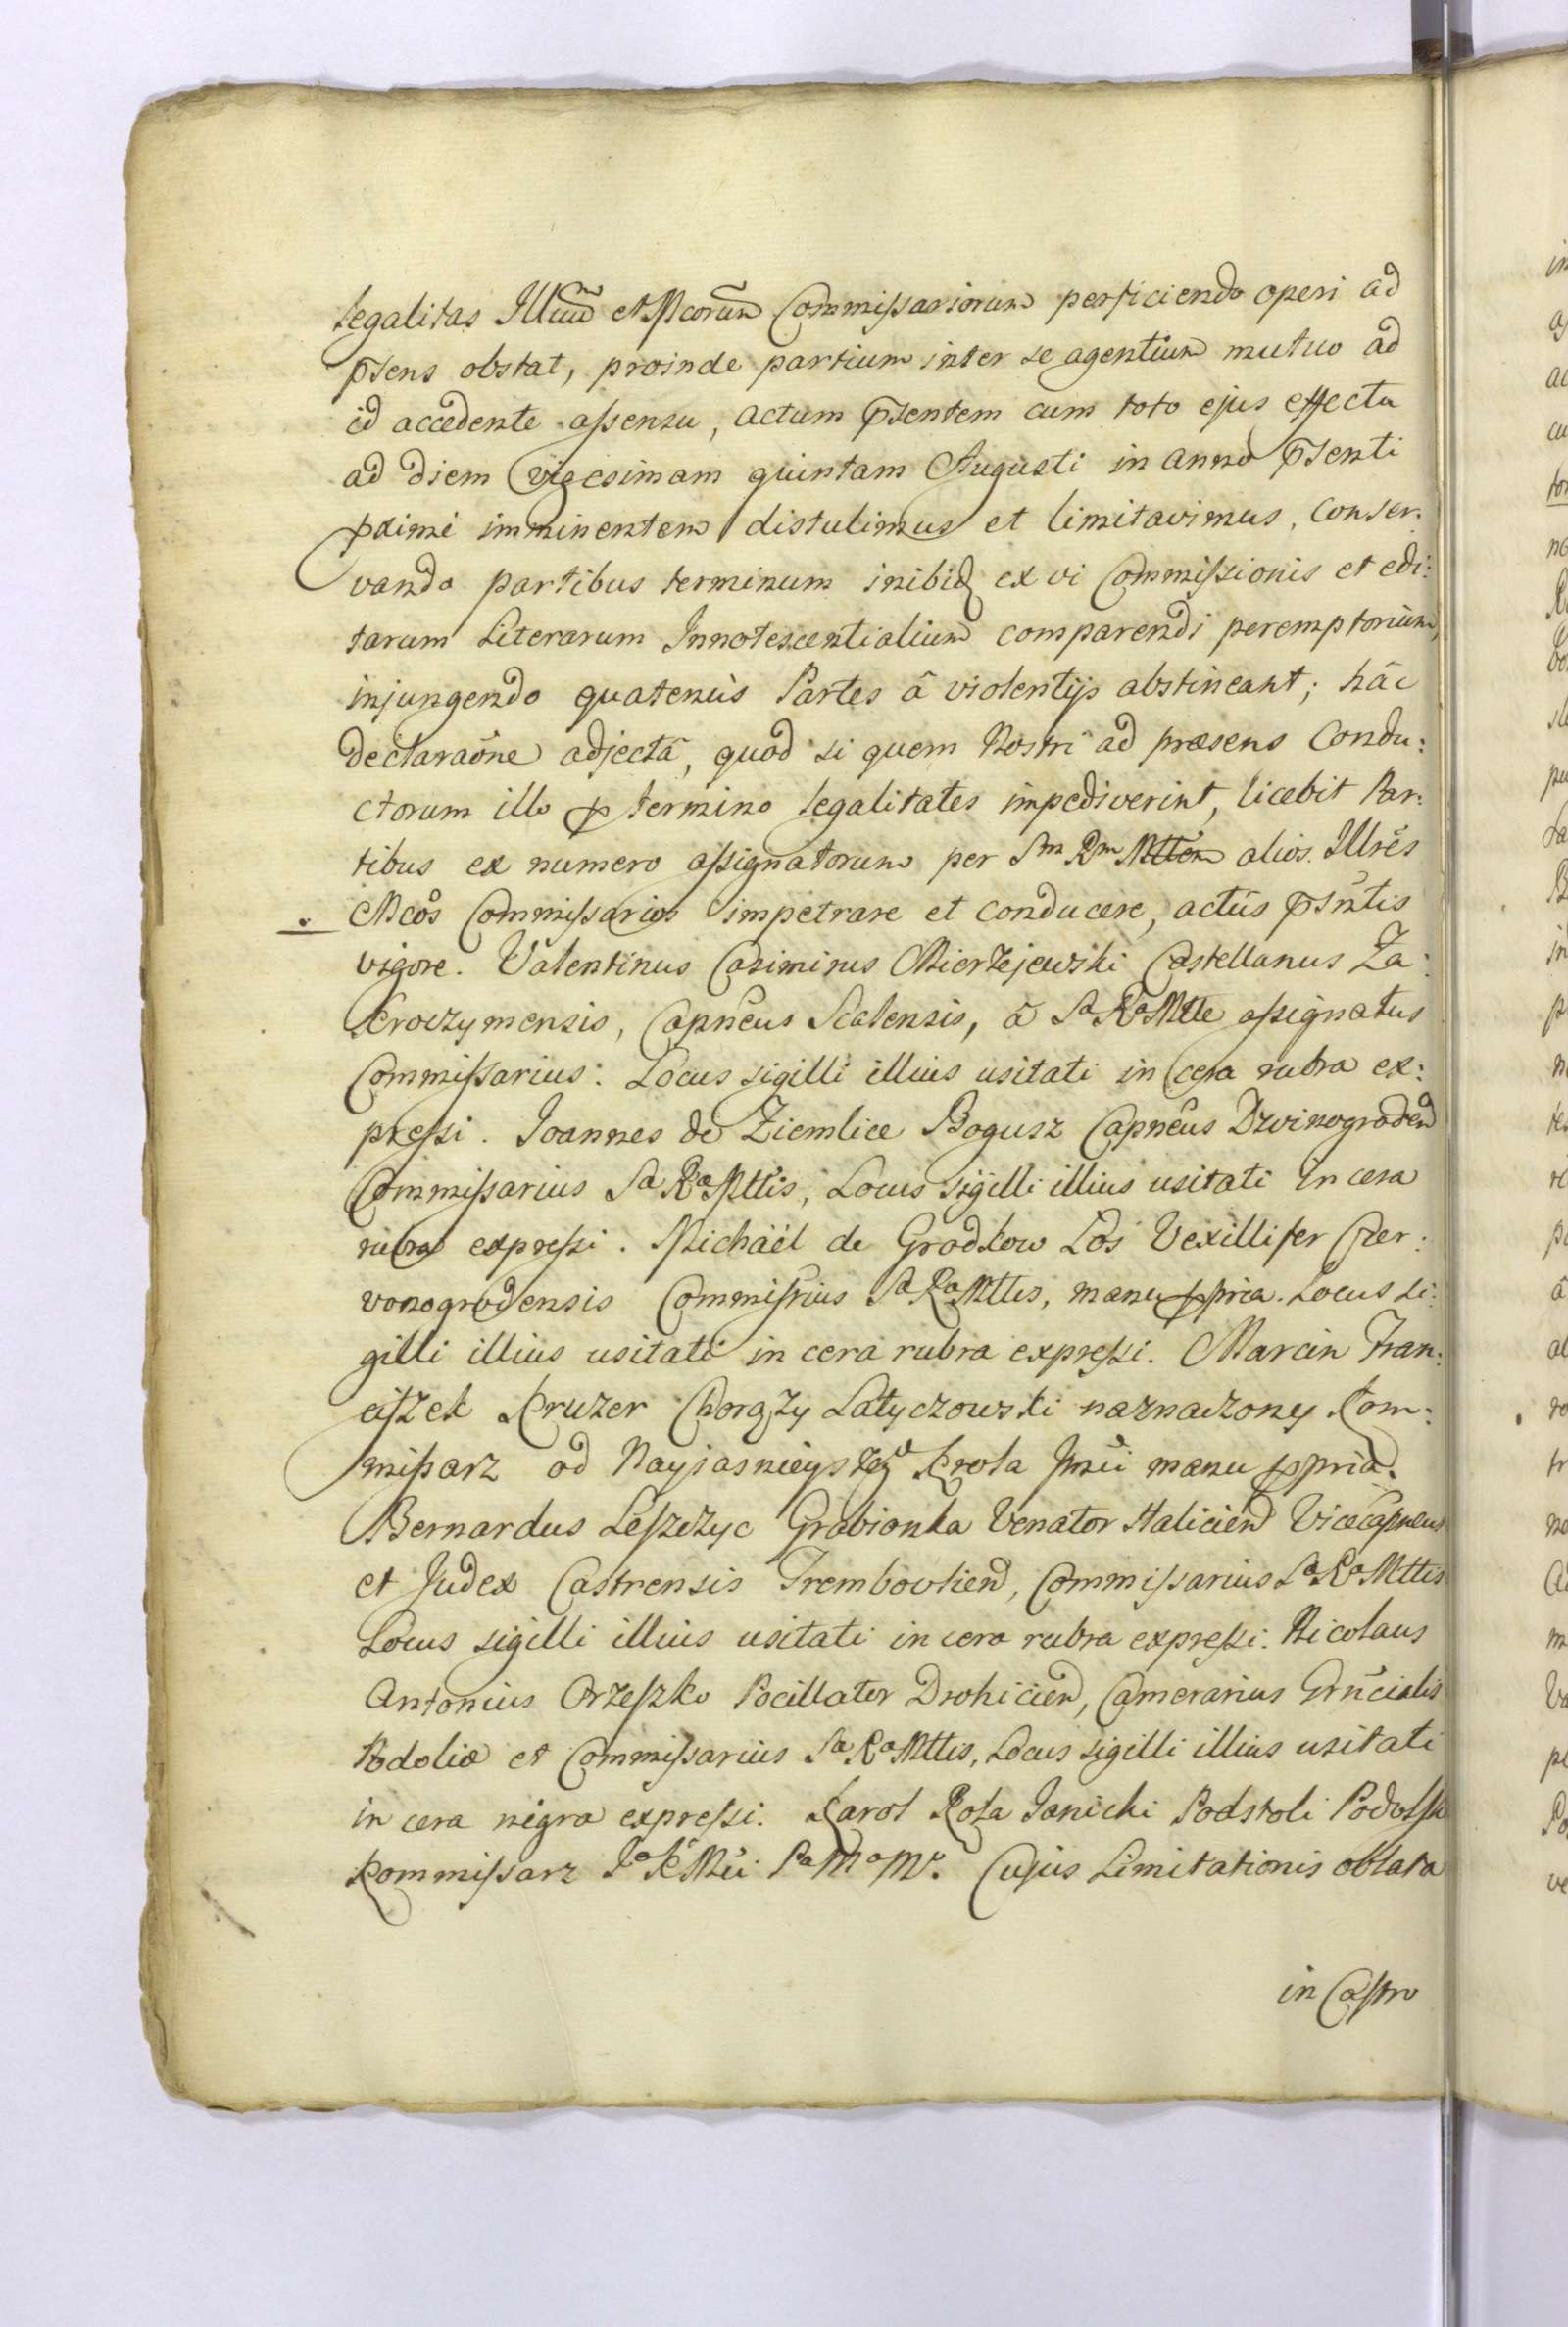 legalitas Illũm et Mcorũm Commissariorum perficiendo operi ad
p̃sens obstat, proinde partium inter se agentium mutuo ad
id accedente assensu, actum p̃sentem cum toto ejus effectu
ad diem vigesimam quintam Augusti in anno p̃senti
pximè imminentem distulimus et limitavimus, conser:
vando partibus terminum inibiq ex vi Commissionis et edi:
tarum Literarum Innotescentialium comparendi peremptorium,
injungendo quatenùs Partes â violentijs abstineant; hâc
declaraõne adjectâ, quod si quem Nostri ad præsens Condu:
ctorum illo p termino legalitates impediverint, licebit Par:
tibus ex numero assignatorum per Sm Rm Mttem alios Illrẽs
Mcõs Commissarios impetrare et conducere, actûs p̃sñtis
vigore. Valentinus Casimirus Mierzejewski Castellanus Za:
kroczymensis, Capñeus Scalensis, â Sa Ra Mtte assignatus
Commissarius: Locus sigilli illius usitati in cera rubra ex:
pressi. Joannes de Ziemlice Bogusz Capñeus Dzwinogroden
Commissarius Sa Ra Mttis, Locus sigilli illius usitati in cera
rubra expressi. Michaël de Grodkow Łoś Vexillifer Czer:
vonogrodensis Commissrius Sa Ra Mttis, manu ppria. Locus si:
gilli illius usitati in cera rubra expressi. Marcin Fran:
ciszek Kruzer Chorąży Latyczowski naznaczony Kom:
missarz od Nayjasnieyszego Krola Jmci manu ppria.
Bernardus Leszczyc Grabianka Venator Halicien Vicecapneus
et Judex Castrensis Trembovlien, Commissarius Sa Ra Mttis
Locus sigilli illius usitati in cera rubra expressi. Nicolaus
Antonius Orzeszko Pocillator Drohicien, Camerarius Grñcialis
Podoliæ et Commissarius Sa Ra Mttis, Locus sigilli illius usitati
in cera nigra expressi. Karol Rola Janicki Podstoli Podolsk
Kommissarz Cujus Limitationis oblata
in Castro